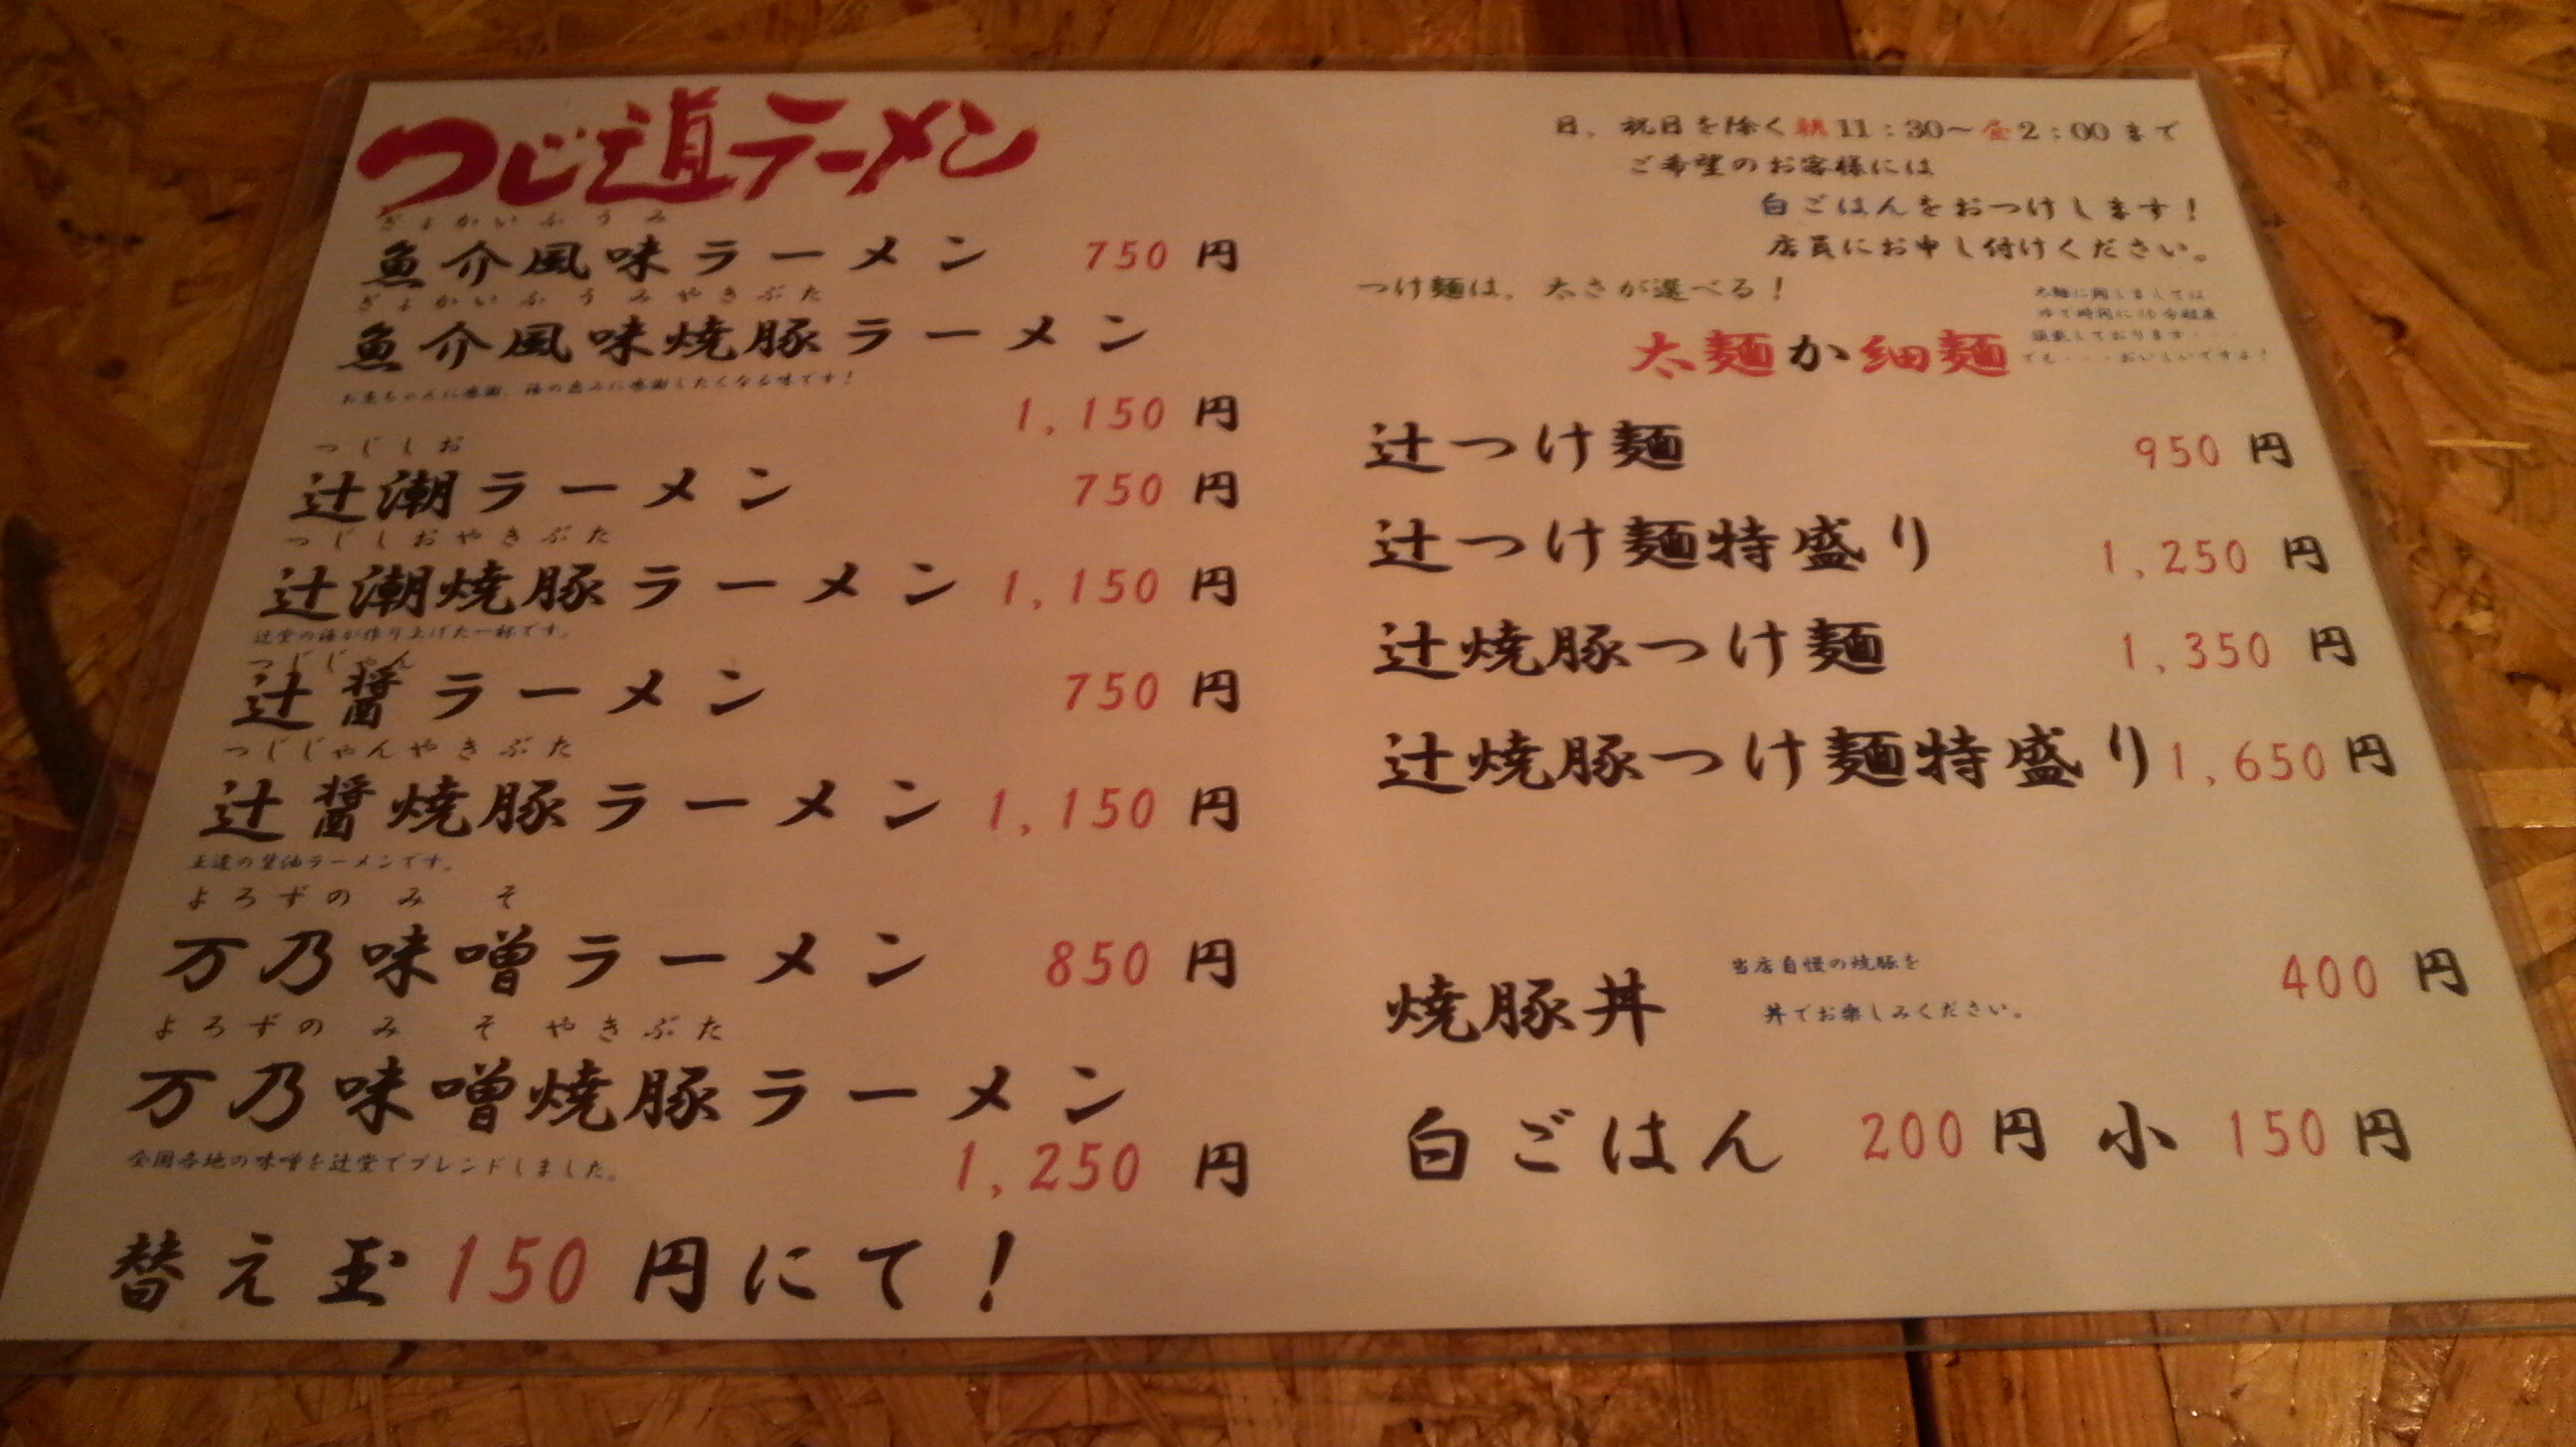 つじ道ラーメン
ぎょかいふうみ
魚介風味ラーメン 750円
ぎょかいふうみやきぶた
魚介風味焼豚ラーメン
お魚ちゃんに感謝、海の恵みに感謝したくなる味です！
1,150円
つじしお
辻潮ラーメン 750円
つじしおやきぶた
辻潮焼豚ラーメン 1,150円
辻堂の海が作り上げた一杯です。
つじじゃん
辻醤ラーメン 750円
つじじゃんやきぶた
辻醤焼豚ラーメン 1,150円
王道の醤油ラーメンです。
よろずのみそ
万乃味噌ラーメン 850円
よろずのみそやきぶた
万乃味噌焼豚ラーメン
全国各地の味噌を辻堂でブレンドしました。
1,250円
替え玉150円にて！
日、祝日を除く朝11:30～昼2:00まで
ご希望のお客様には
白ごはんをおつけします！
店員にお申し付けください。
つけ麺は、太さが選べる！
太麺か細麺
太麺に関しましては
ゆで時間に10分程度
頂戴しております・・・
でも・・・おいしいですよ！
辻つけ麺 950円
辻つけ麺特盛り 1,250円
辻焼豚つけ麺 1,350円
辻焼豚つけ麺特盛り 1,650円
焼豚丼 400円
当店自慢の焼豚を
丼でお楽しみください。
白ごはん 200円 小 150円